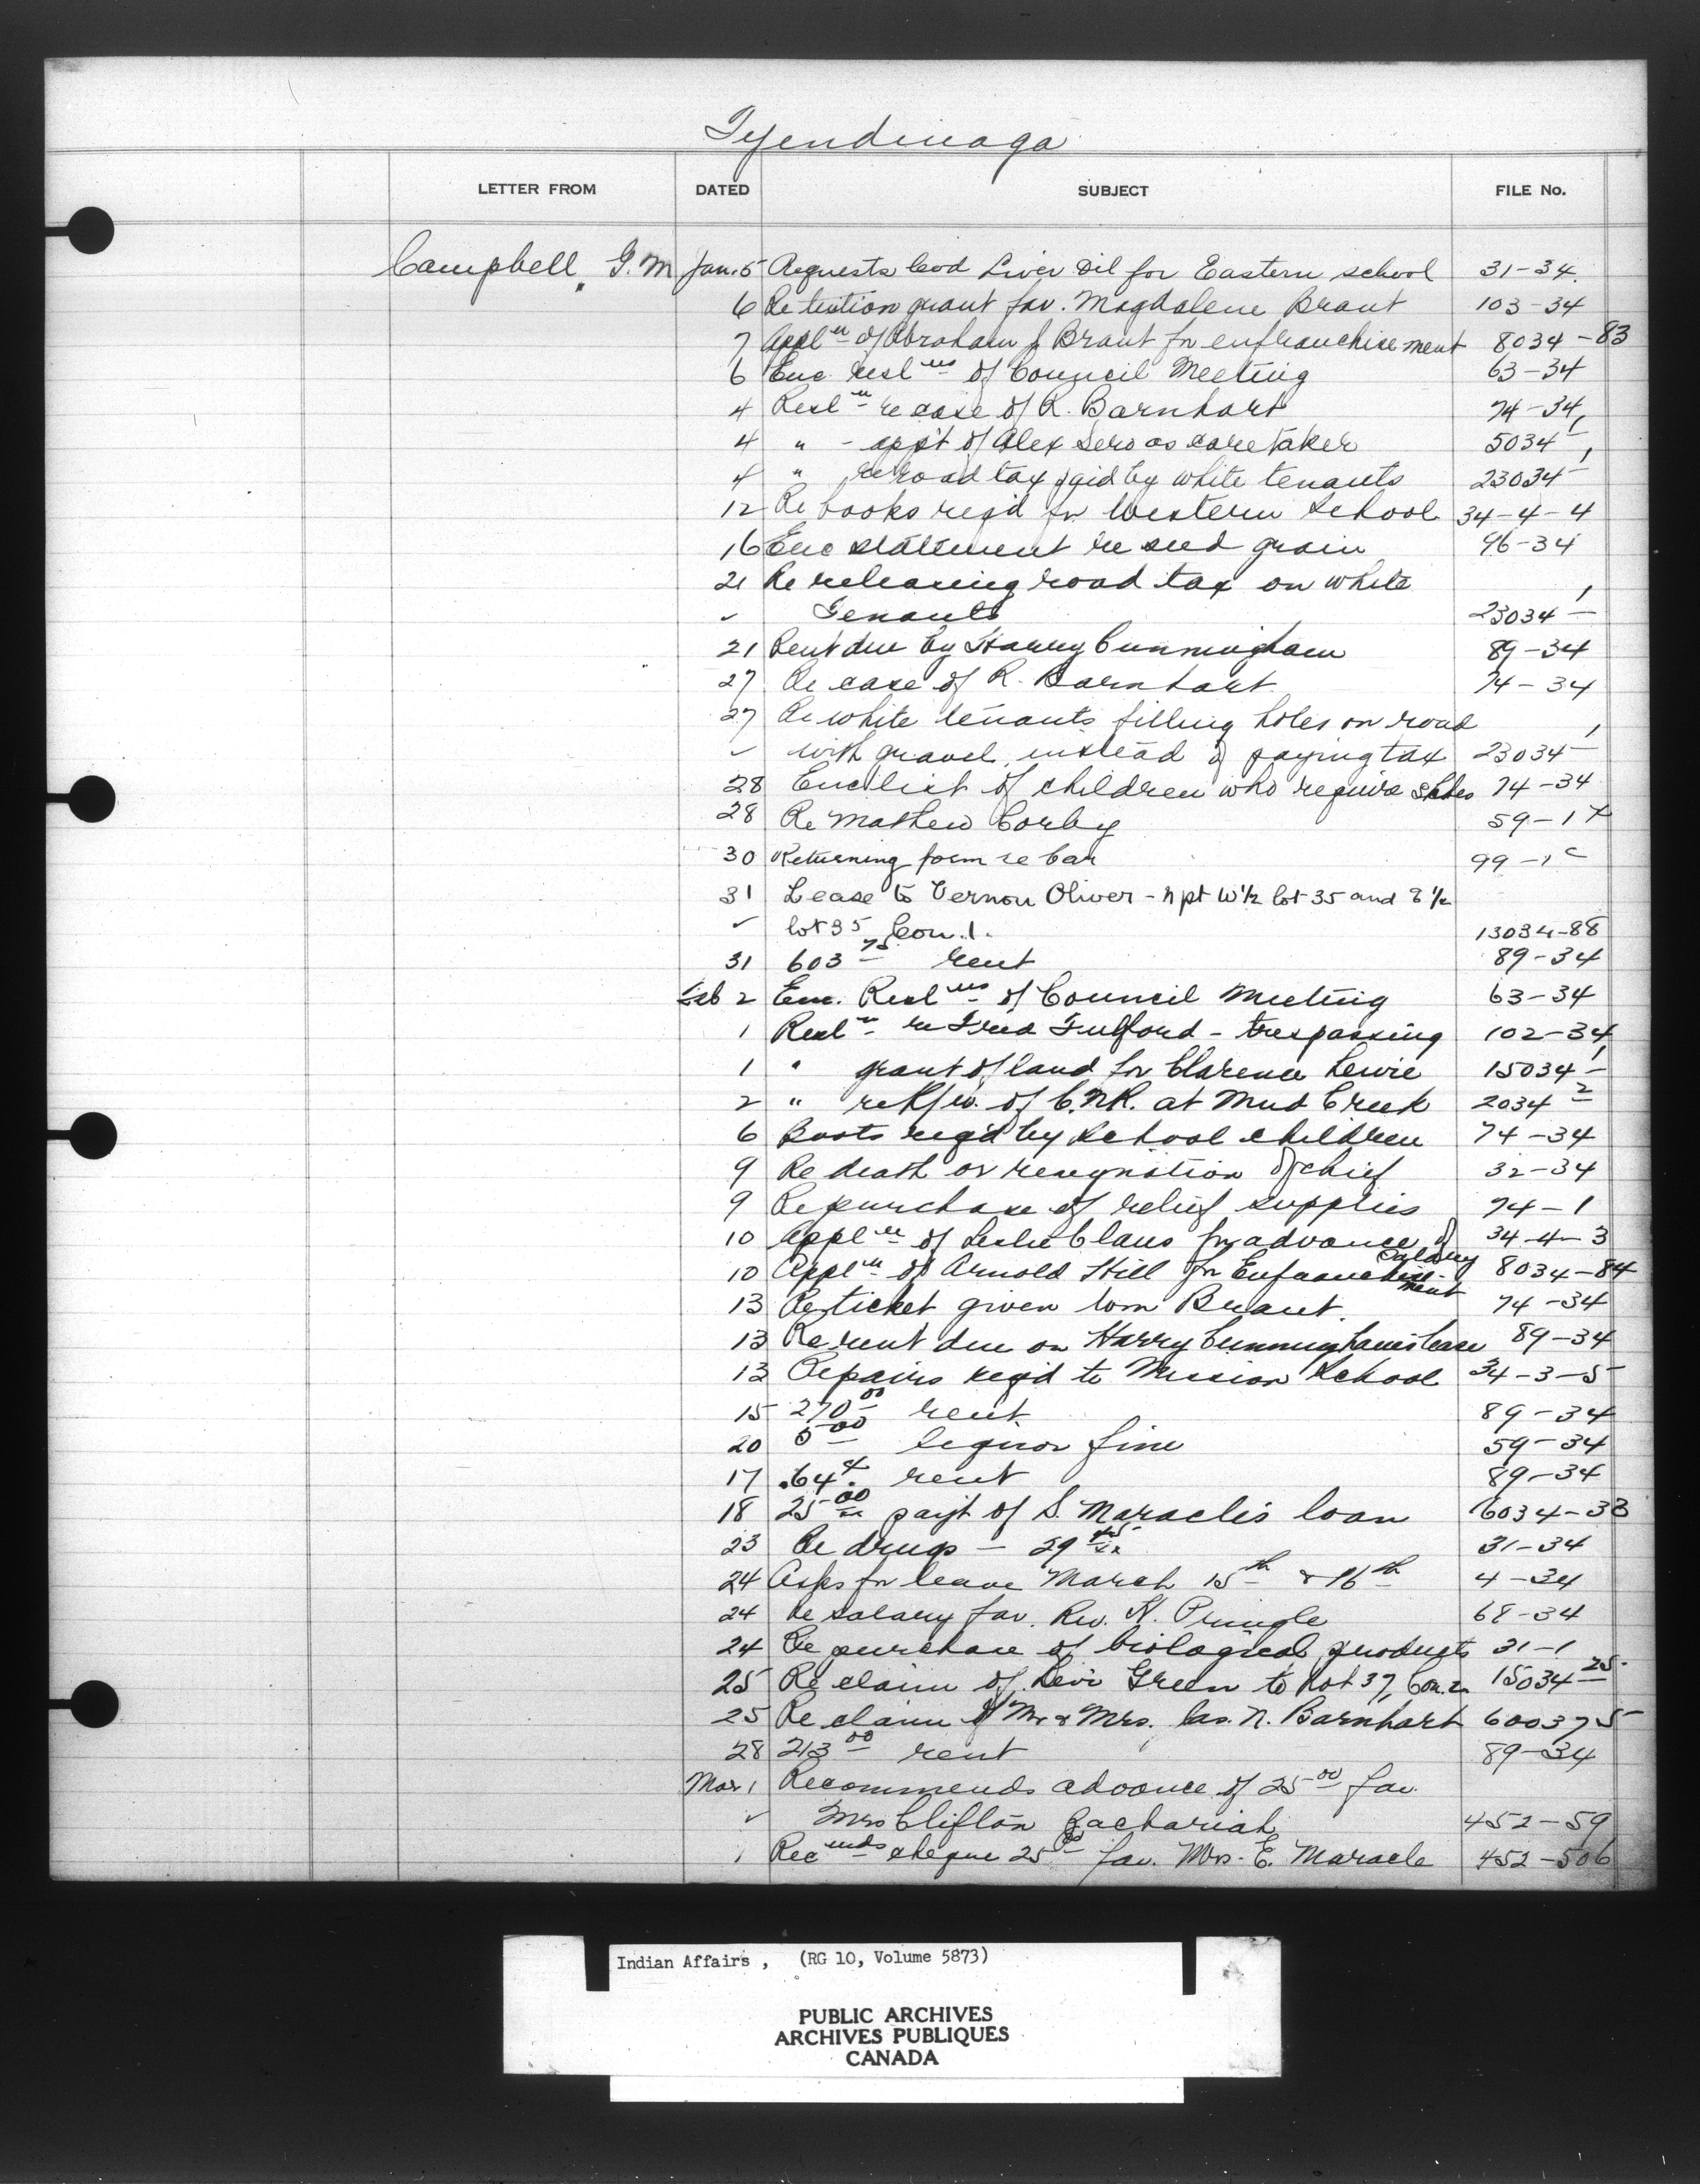 Tyendinaga
LETTER FROM DATED SUBJECT FILE No.
Campbell, G. M Jan. 5 Requests Cod Liver Oil for Eastern school 31-34
6 Re tuition grant fav. Magdalene Brant 103-34
7 Appln of Abraham J. Brant for enfranchisement 8034-83
6 Enc reslns of Council Meeting 63-34
4 Resln re case of R. Barnhart 74-34
4 " - app't of Alex Sero as caretaker 5034-1
4 " re road tax paid by white tenants 23034-1
12 Re books req'd for Western School 34-4-4
16 Enc statement re seed grain 96-34
21 Re releasing road tax on white
✓ Tenants 23034-1
21 Rent due by Harry Cunningham 89-34
27 Re case of R. Barnhart 74-34
27 Re white tenants filling holes on road
✓ with gravel instead of paying tax 23034-1
28 Enc list of children who require shoes 74-34
28 Re Mathew Corby 59-1
30 Returning form re Car 99-1c
31 Lease to Vernon Oliver - n pt W½ lot 35 and E ½
✓ lot 35 Con. 1. 13034-88
31 603 75 rent 89-34
Feb 2 Enc. Reslns of Council Meeting 63-34
1 Resln re Fred Fulford - trespassing 102-34
1 " grant of land for Clarence Lewis 15034-1
2 " re R/w. of C.N.R. at Mud Creek 2034-2
6 Boots req'd by School children 74-34
9 Re death or resignation of chief 32-34
9 Re purchase of relief supplies 74-1
10 Appln of Leslie Claus for advance of salary 34-4-3
10 Appln of Arnold Hill for Enfranchisement 8034-84
13 Re ticket given Wm Brant. 74-34
13 Re rent due on Harry Cunningham's lease 89-34
13 Repairs req'd to Mission School 34-3-5
15 270 00 rent 89-34
20 5 00 liquor fine 59-34
17 .64 rent 89-34
18 25 00 pay't of S. Maracle's loan 16034-33
23 Re drugs - 29 45 31-34
24 Asks for leave March 15th & 16th 4-34
24 Re salary fav. Rev. Pringle 68-34
24 Re purchase of biological products 31-1
25 Re claim of Levi Green to Lot 37, Con. 2 15034-25
25 Re claim of Mr & Mrs. Jas. N. Barnhart 600375
28 213 00 rent 89-34
Mar 1 Recommends advance of 25 00 fav.
✓ Mrs Clifton Zachariah 452-59
1 Recmnds cheque 25 00 fav. Mrs. E. Maracle 452-506
Indian Affairs, (RG 10, Volume 5873)
PUBLIC ARCHIVES
ARCHIVES PUBLIQUES
CANADA